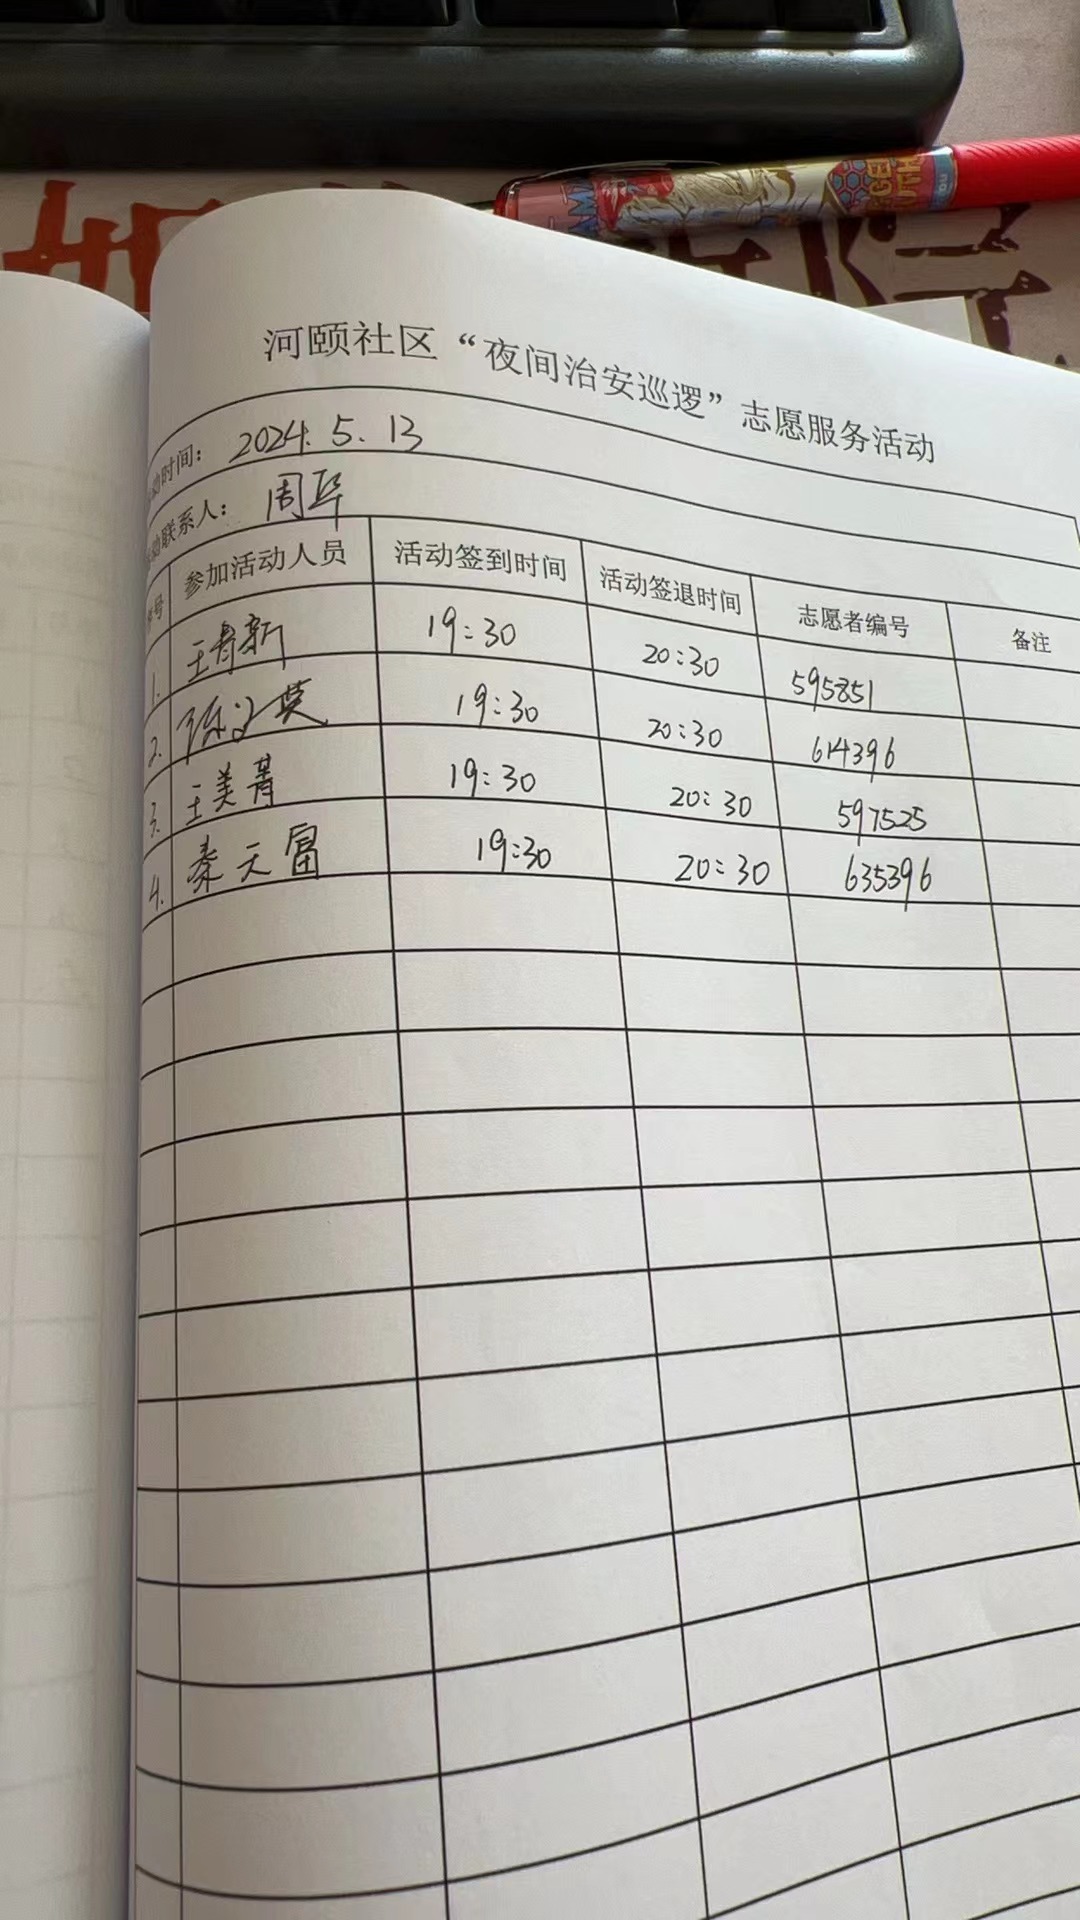 河颐社区“夜间治安巡逻”志愿服务活动
动时间： 2024.5.13
动联系人： 周华
序号 参加活动人员 活动签到时间 活动签退时间 志愿者编号 备注
1. 王青新 19:30 20:30 595851
2. 陈文英 19:30 20:30 614396
3. 王美菁 19:30 20:30 597525
4. 秦天富 19:30 20:30 635396